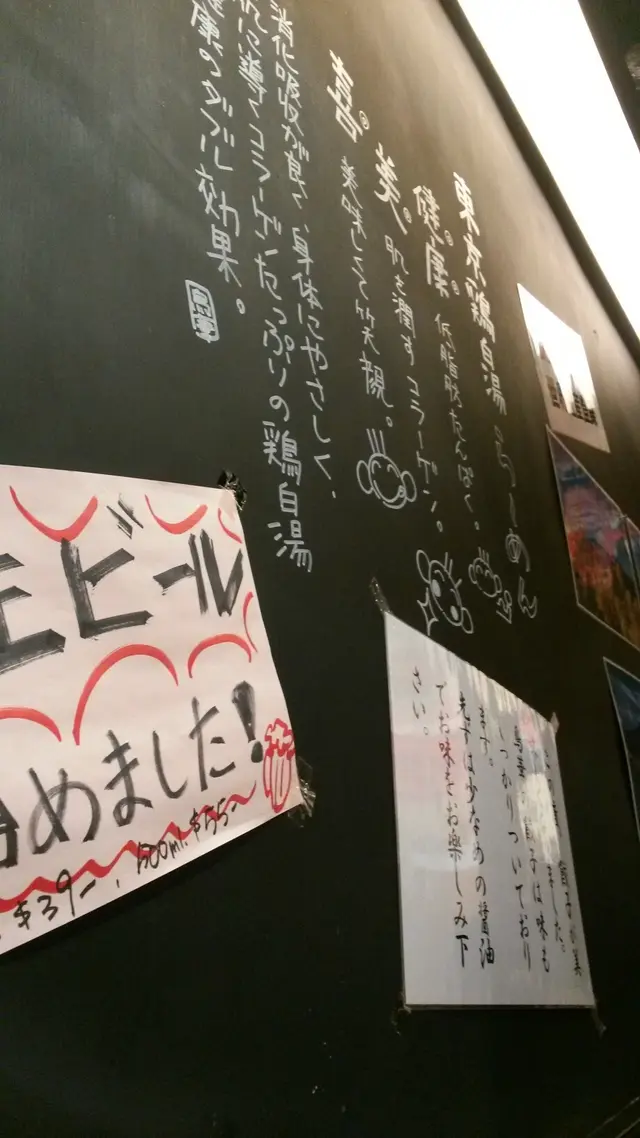 東京鶏白湯らーめん
健康。低脂肪たんぱく。
美。肌を潤すコラーゲン。
喜。美味しくて笑顔。
消化吸収が良く、身体にやさしく、
肌に導くコラーゲンたっぷりの鶏白湯
健康のダブル効果。
生ビール
始めました!
$39-. 500ml. $55-
しっかりついており
ます。
でお味をお楽しみ下
さい。